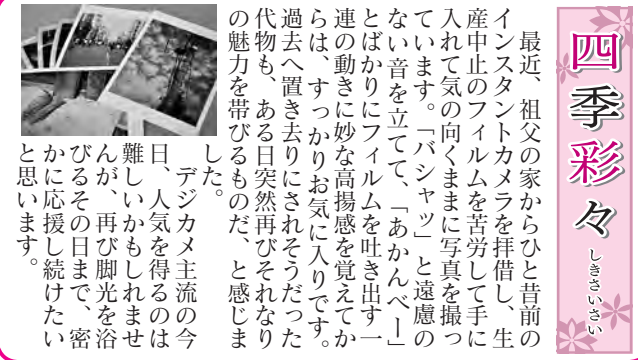 四季彩々
しきさいさい
最近、祖父の家からひと昔前の
インスタントカメラを拝借し、生
産中止のフィルムを苦労して手に
入れて気の向くままに写真を撮っ
ています。「バシャッ」と遠慮の
ない音を立てて、「あかんべー」
とばかりにフィルムを吐き出す一
連の動きに妙な高揚感を覚えてか
らは、すっかりお気に入りです。
過去へ置き去りにされそうだった
代物も、ある日突然再びそれなり
の魅力を帯びるものだ、と感じま
した。
デジカメ主流の今
日、人気を得るのは
難しいかもしれませ
んが、再び脚光を浴
びるその日まで、密
かに応援し続けたい
と思います。